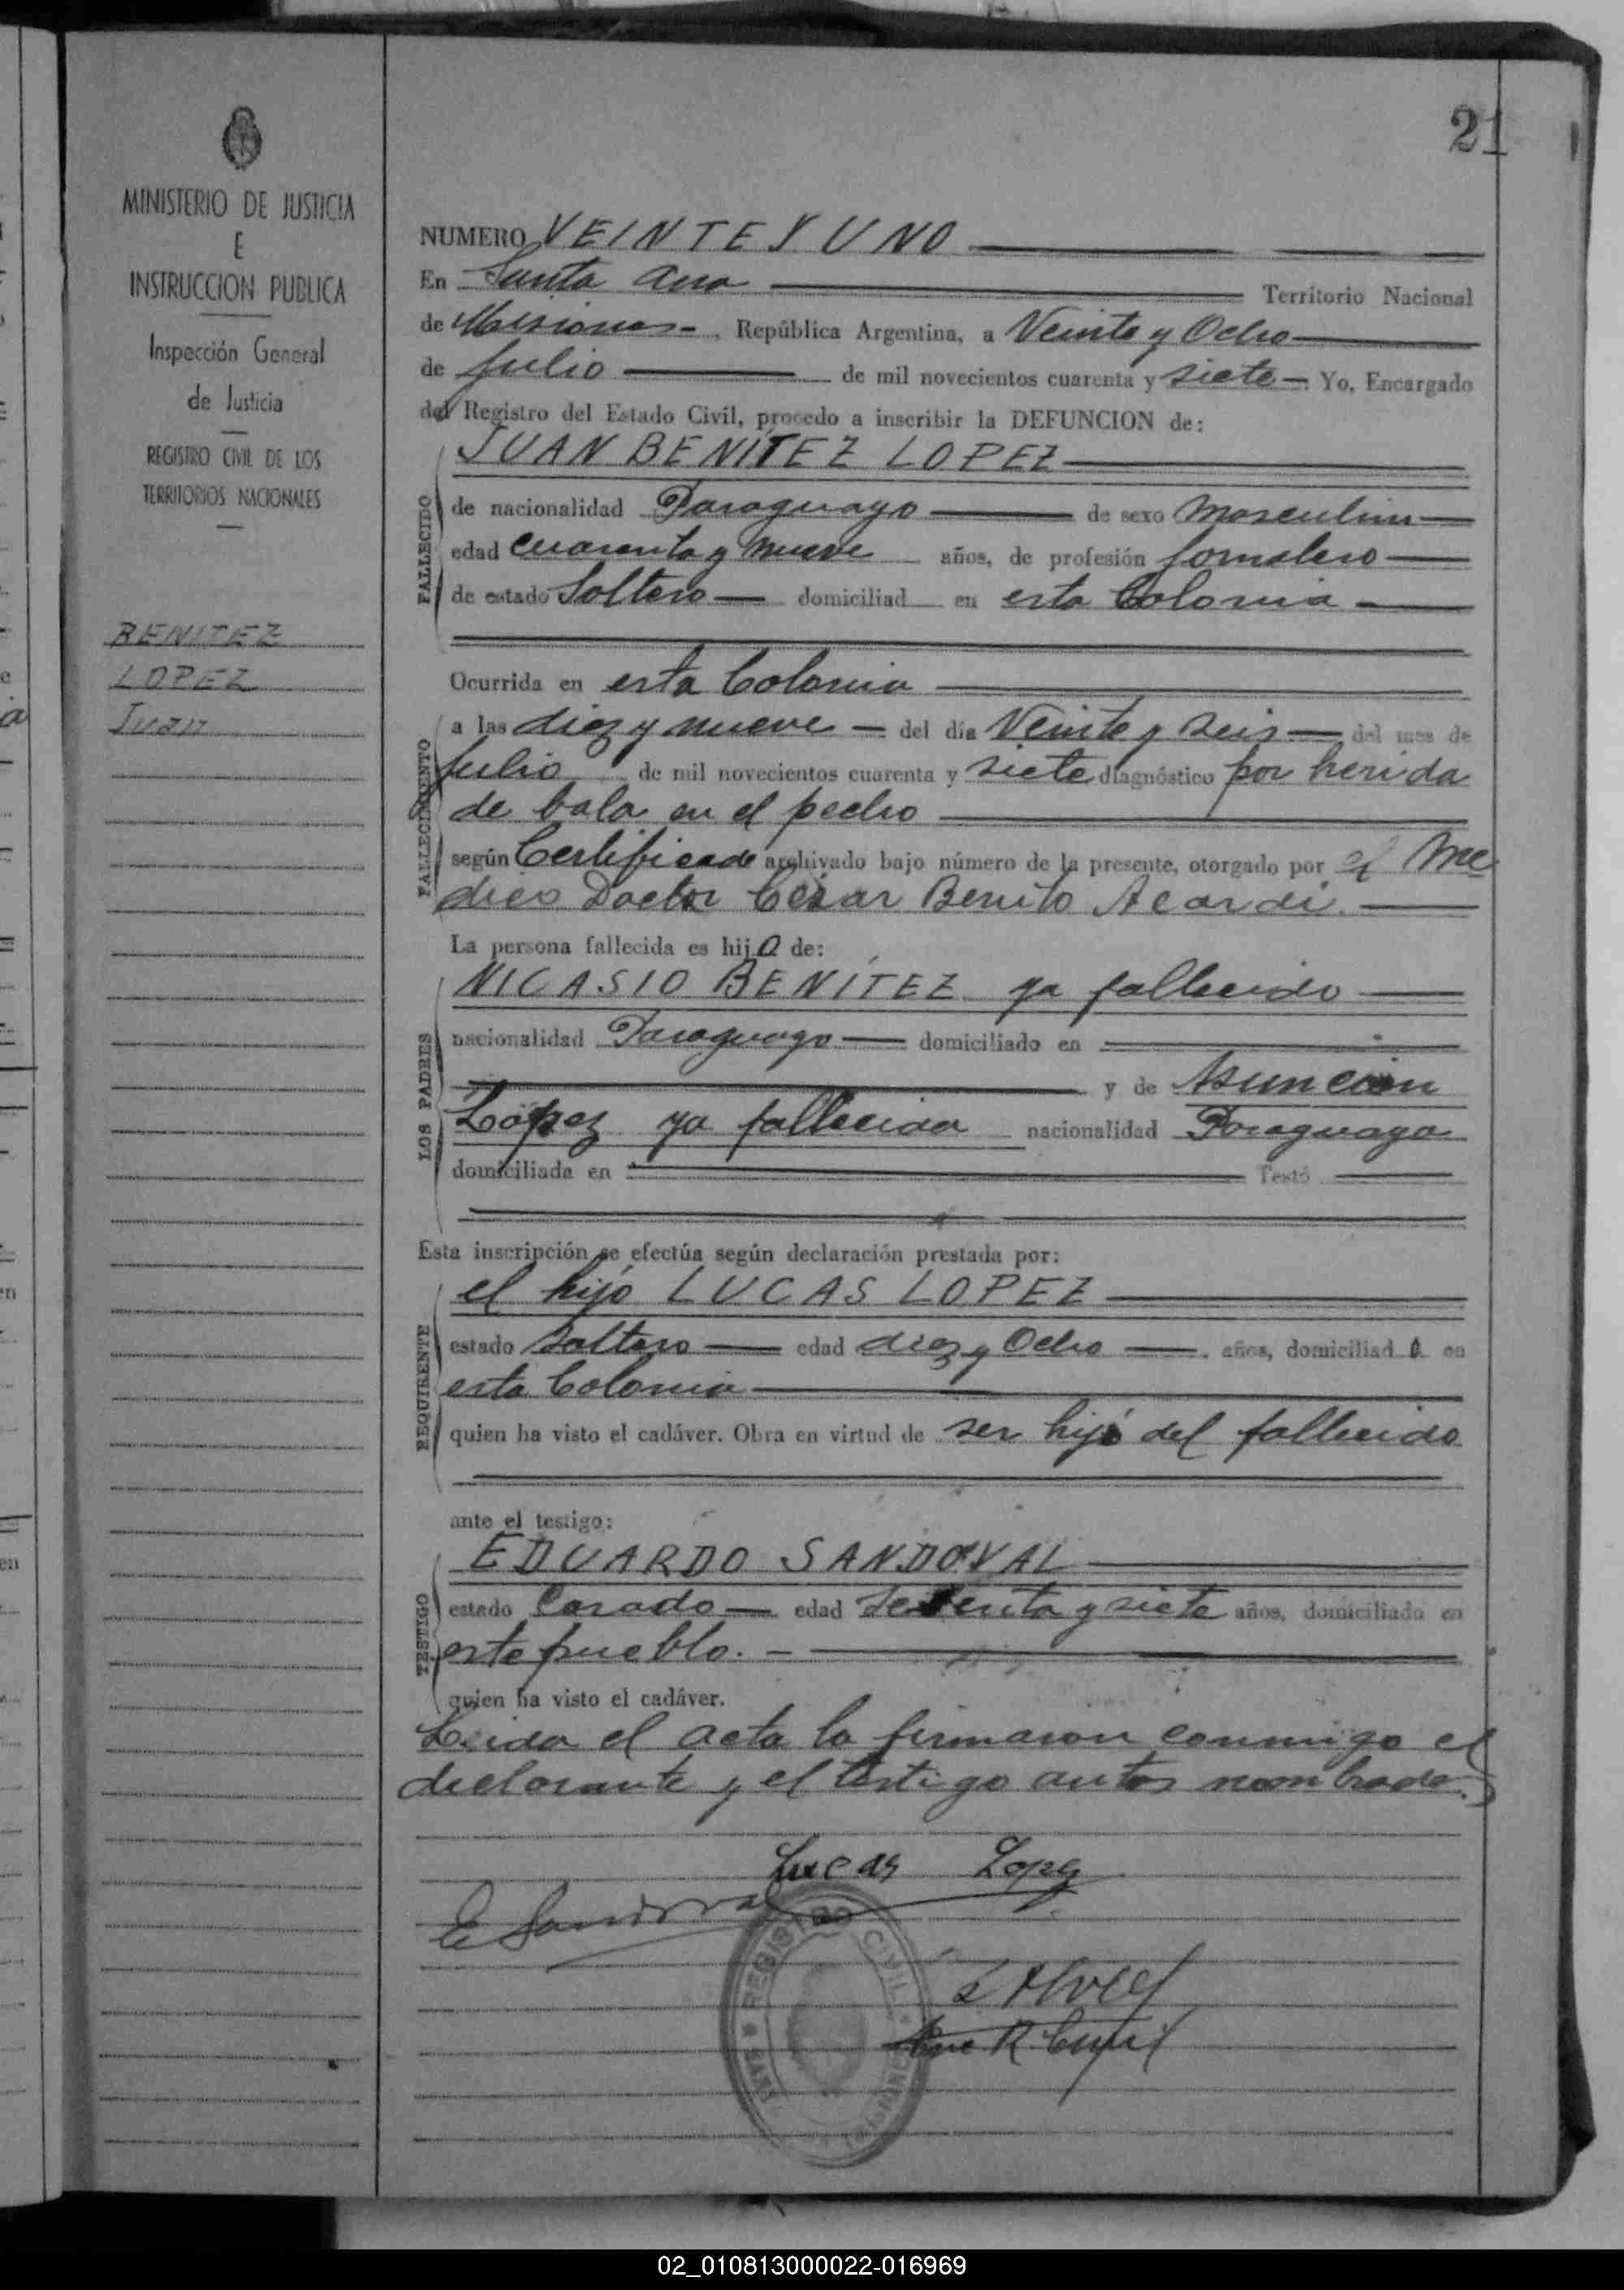 21
MINISTERIO DE JUSTICIA
E
INSTRUCCION PUBLICA
Inspección General
de Justicia
REGISTRO CIVIL DE LOS
TERRITORIOS NACIONALES
BENITEZ
LOPEZ
Juan
NUMERO VEINTE Y UNO
En Santa Ana Territorio Nacional
de Misiones, República Argentina, a Veinte y Ocho
de Julio de mil novecientos cuarenta y siete. Yo, Encargado
del Registro del Estado Civil, procedo a inscribir la DEFUNCION de:
JUAN BENÍTEZ LOPEZ
FALLECIDO
de nacionalidad Paraguayo de sexo Masculino
edad cuarenta y nueve años, de profesión Jornalero
de estado Soltero domiciliad en esta Colonia
Ocurrida en esta Colonia
FALLECIMIENTO
a las diez y nueve del día Veinte y seis del mes de
Julio de mil novecientos cuarenta y siete diagnóstico por herida
de bala en el pecho
según Certificado archivado bajo número de la presente, otorgado por el Me
dico Doctor César Benito Acardi.
La persona fallecida es hijo de:
LOS PADRES
NICASIO BENÍTEZ ya fallecido
nacionalidad Paraguayo domiciliado en
y de Asunción
López ya fallecida nacionalidad Paraguaya
domiciliada en Testó
Esta inscripción se efectúa según declaración prestada por:
REQUIRENTE
el hijo LUCAS LOPEZ
estado Soltero edad diez y Ocho años, domiciliado en
esta Colonia
quien ha visto el cadáver. Obra en virtud de ser hijo del fallecido
ante el testigo:
TESTIGO
EDUARDO SANDOVAL
estado Casado edad y siete años, domiciliado en
este pueblo.
quien ha visto el cadáver.
Leida el acta la firmaron conmigo el
declarante y el testigo antes nombrado.
Lucas Lopez
E Sandoval
REGISTRO CIVIL
02_010813000022-016969